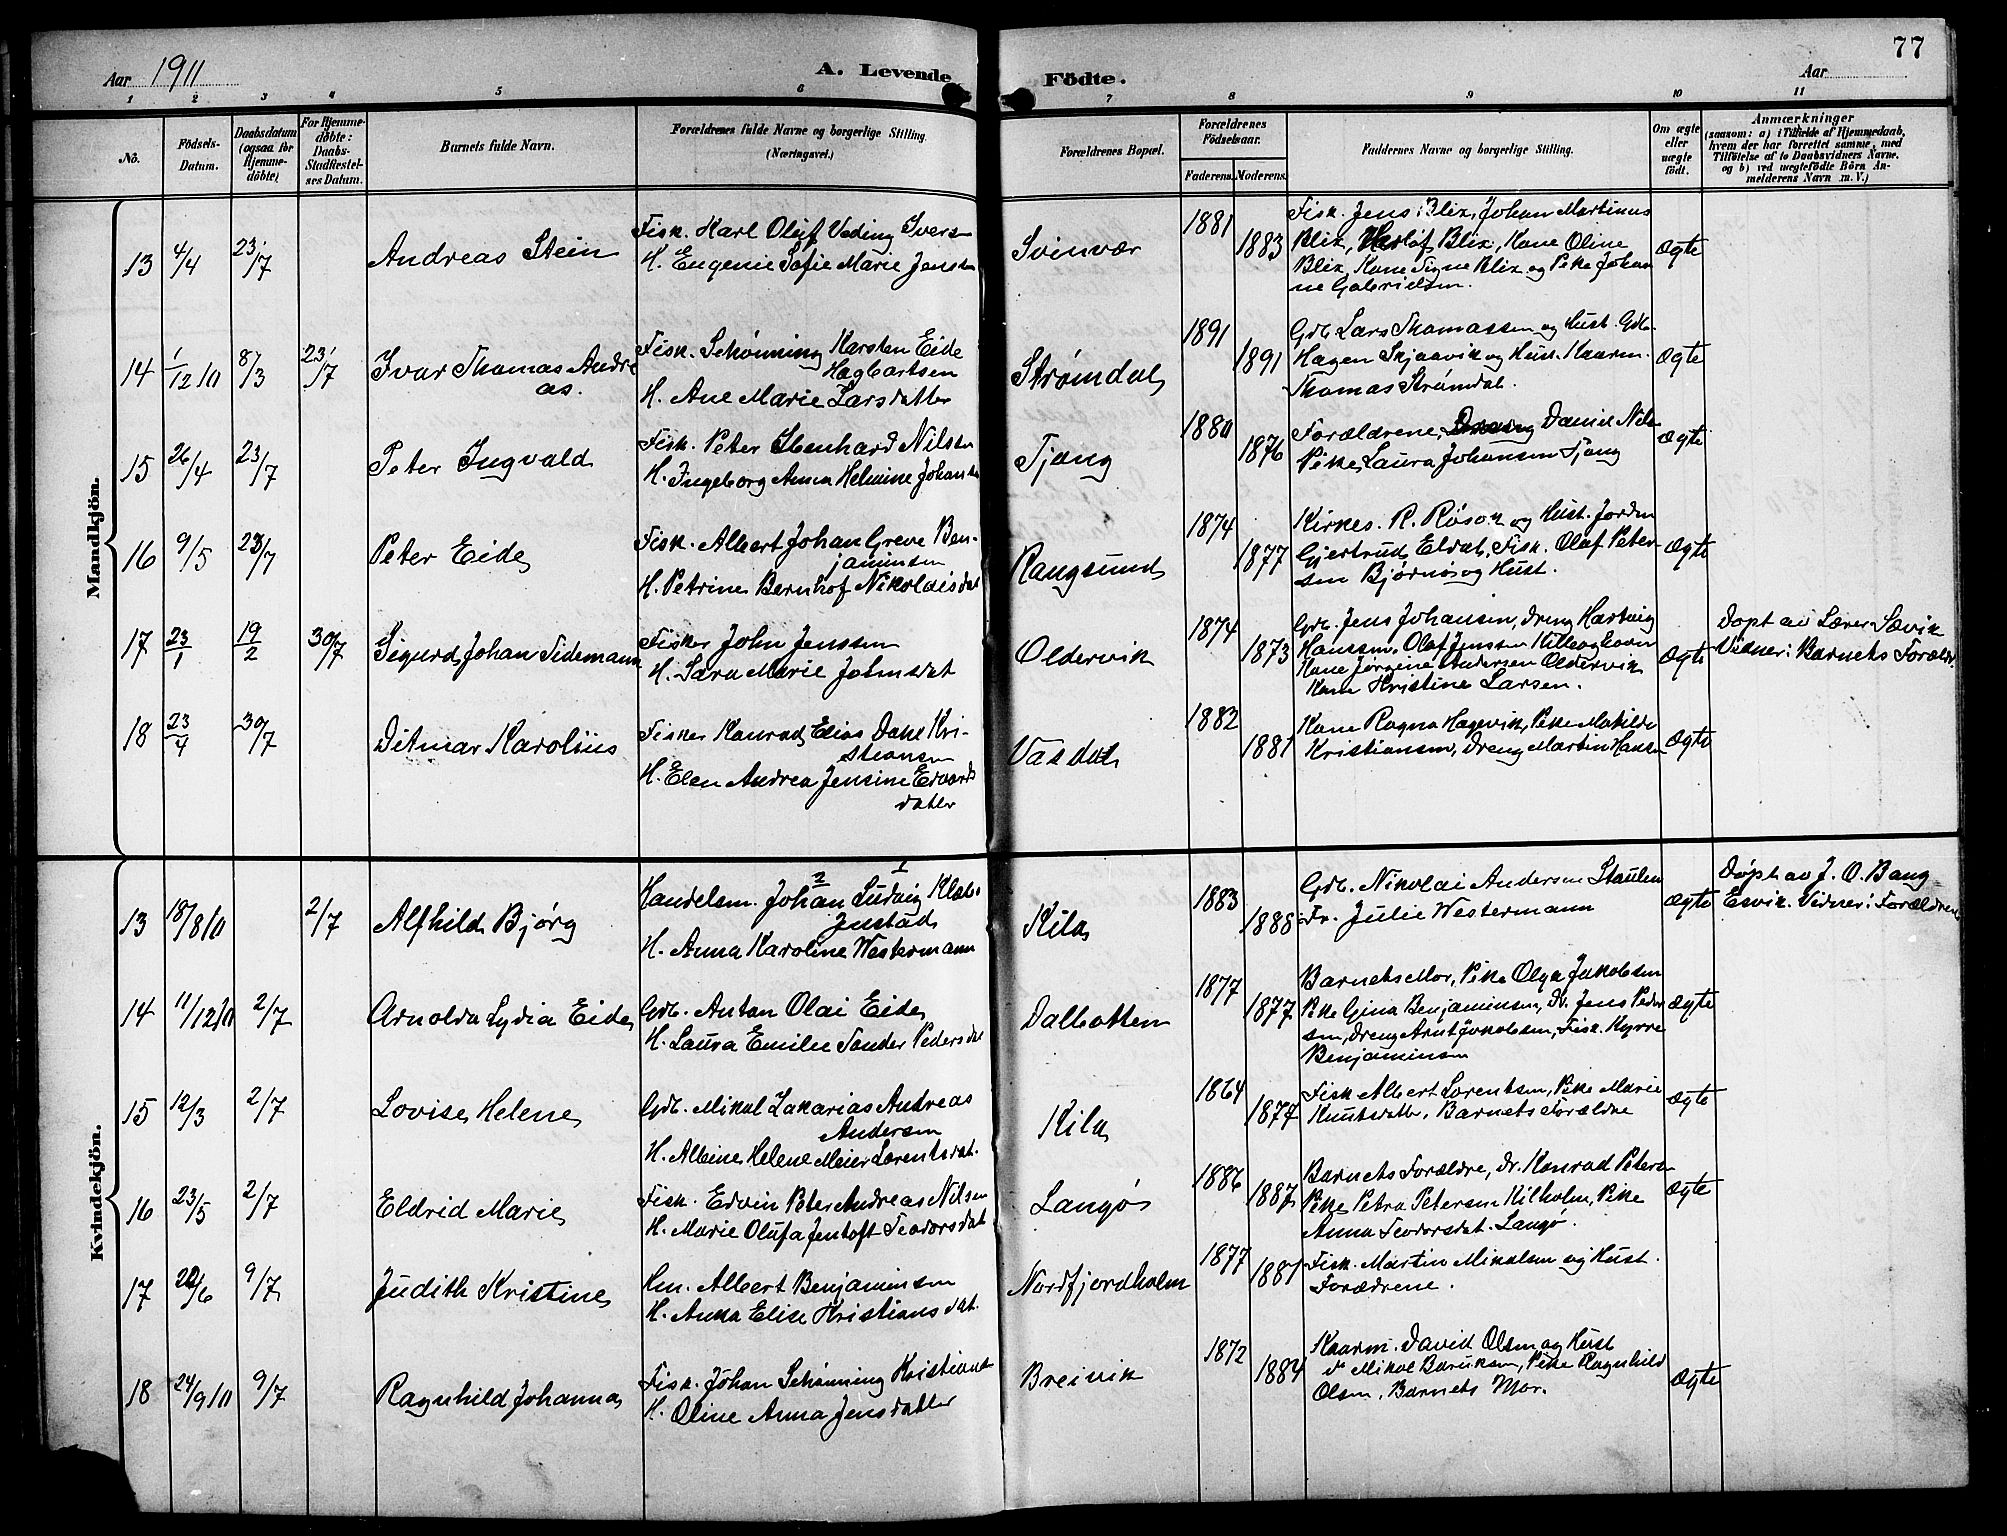 77
Aar 1911
A. Levende
Födte.
Aar
1 2 3 4 5 6 7 8 9 10 11
No.
Födsels-
Datum.
Daabsdatum
(ogsaa for
Hjemme-
döbte)
For Hjemme-
döbte:
Daabs-
Stadfæstel-
ses Datum.
Barnets fulde Navn.
Forældrenes fulde Navne og borgerlige Stilling.
(Næringsvei.)
Forældrenes Bopæl.
Forældrenes
Födselsaar.
Faderens. Moderens.
Faddernes Navne og borgerlige Stilling.
Om ægte
eller
uægte
født.
Anmærkninger
(saasom: a) i Tilfælde af Hjemmedaab,
hvem der har forrettet samme, med
Tilföielse af to Daabsvidners Navne.
og b) ved uægtefödte Börn An-
melderens Navn m. V.)
Mandkjön.
13 4/4 23/7 Andreas Stein
Fisk. Karl Oluf Veding Ivers
H. Eugenie Sofie Marie Jensen
Svinvær 1881 1883
Fisk. Jens Blix, Johan Martinus
Blix, Blix, Kone Oline
Blix, Kone Signe Blix og Pike Johan
ne Gabrielsen.
Ægte
14 1/12 10 8/3 23/7 Ivar Thomas Andre
as.
Fisk. Schønning Karsten Eide
Hagbartsen
H. Ane Marie Larsdatter
Strømdal 1891 1891
Gdb. Lars Thomassen og Hust. Gdb.
Hagen Skjaavik og Hust. Kaarm.
Thomas Strømdal.
Ægte
15 26/4 23/7 Peter Ingvald
Fisk. Peter Ebenhard Nilsen
H. Ingeborg Anna Helmine Johansd
Tjong 1880 1876
Forældrene, Daniel Nils
Pike Laura Johansen Tjong
Ægte
16 9/5 23/7 Peter Eide
Fisk. Albert Johan Greve Ben-
jaminsen
H. Petrine Bernhof Nikolaisdat
Rangsund 1874 1877
Kirkes. R. Røsok og Hust. Jordm
Gjertrud Eldal, Fisk. Olaf Peter-
sen Bjørnø og Hust.
Ægte
17 23/1 19/2 30/7 Sigurd Johan Tidemann
Fisker John Jenssen
H. Sara Marie Johnsdat
Oldervik 1874 1873
Gdb. Jens Johansen, Dreng Hartvig
Hanssen, Olaf Jenssen
Kone Jørgine Andersen Oldervik
Kone Kristine Larsen.
Ægte
Døpt av Lærer Sævik
Vidner: Barnets Forældr.
18 23/4 30/7 Ditmar Karolius
Fisker Konrad Elias Dahl Kri-
stiansen
H. Elen Andrea Jensine Edvards
datter
Vasdal 1882 1881
Kone Ragna Hagevik, Pike Matilde
Kristiansen, Dreng Martin Hansen
Ægte
Kvindekjön.
13 18/8 10 2/7 Alfhild Bjørg
2 1
Handelsm. Johan Ludvig Klæbo
Jenstad
H. Anna Karoline Westermann
Kila 1883 1888
Gdb. Nikolai Andersen Staulen
Fr. Julie Westermann
Ægte
Døpt av J. O. Bang
Esvik. Vidner: Forældrene
14 11/12 10 2/7 Arnolda Lydia Eide
Gdb. Anton Olai Eide
H. Laura Emilie Sander Pedersdat
Dalbotten 1877 1877
Barnets Mor, Pike Olga Jakobsen
Pike Gina Benjaminsen, Dr. Jens Peder
sen, Dreng Arnt Jakobsen, Fisk. Kyrre
Benjaminsen
Ægte
15 12/3 2/7 Lovise Helene
Gdb. Mikal Zakarias Andreas
Andersen
H. Albine Helene Meier Lorentsdat.
Kila 1864 1874
Fisk Albert Lorentsen, Pike Marie
Knutsdatter, Barnets Forældre
Ægte
16 23/5 2/7 Eldrid Marie
Fisk. Edvin Peter Andreas Nilsen
H. Marie Olufa Jentoft Teodorsdat
Langø 1886 1887
Barnets Forældre, Dr. Konrad Peters
Pike Petra Petersen Kilholm, Pike
Anna Teodorsdat. Langø.
Ægte
17 22/6 9/7 Judith Kristine
Em. Albert Benjaminsen
H. Anna Elise Kristiansdat.
Nordfjordholm 1877 1887
Fisk. Martin Mikalsen og Hust.
Forædrene.
18 24/9 10 9/7 Ragnhild Johanna
Fisk. Johan Schønning Kristians
H. Oline Anna Jensdatter
Breivik 1872 1884
Kaarm. David Olsen og Hust
Mikal Baruksen, Pike Ragnhild
Olsen, Barnets Mor.
Ægte